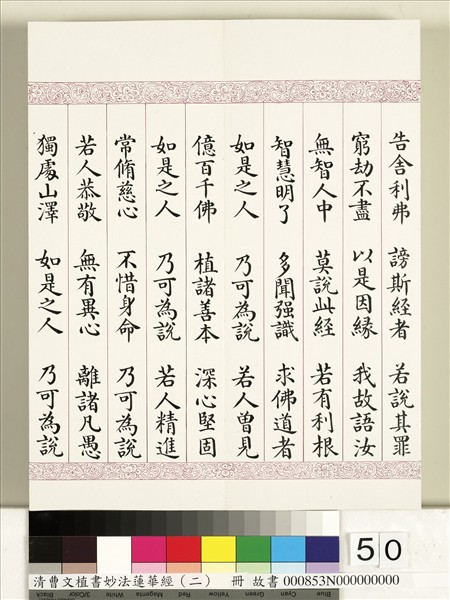 告舍利弗 謗斯經者 若說其罪
窮劫不盡 以是因緣 我故語汝
無智人中 莫說此經 若有利根
智慧明了 多聞强識 求佛道者
如是之人 乃可為說 若人曾見
億百千佛 植諸善本 深心堅固
如是之人 乃可為說 若人精進
常脩慈心 不惜身命 乃可為說
若人恭敬 無有異心 離諸凡愚
獨處山澤 如是之人 乃可為說
50
Black 3/Color White Magenta Red Yellow Green Cyan Blue
清曹文植書妙法蓮華經（二） 冊 故書 000853N000000000